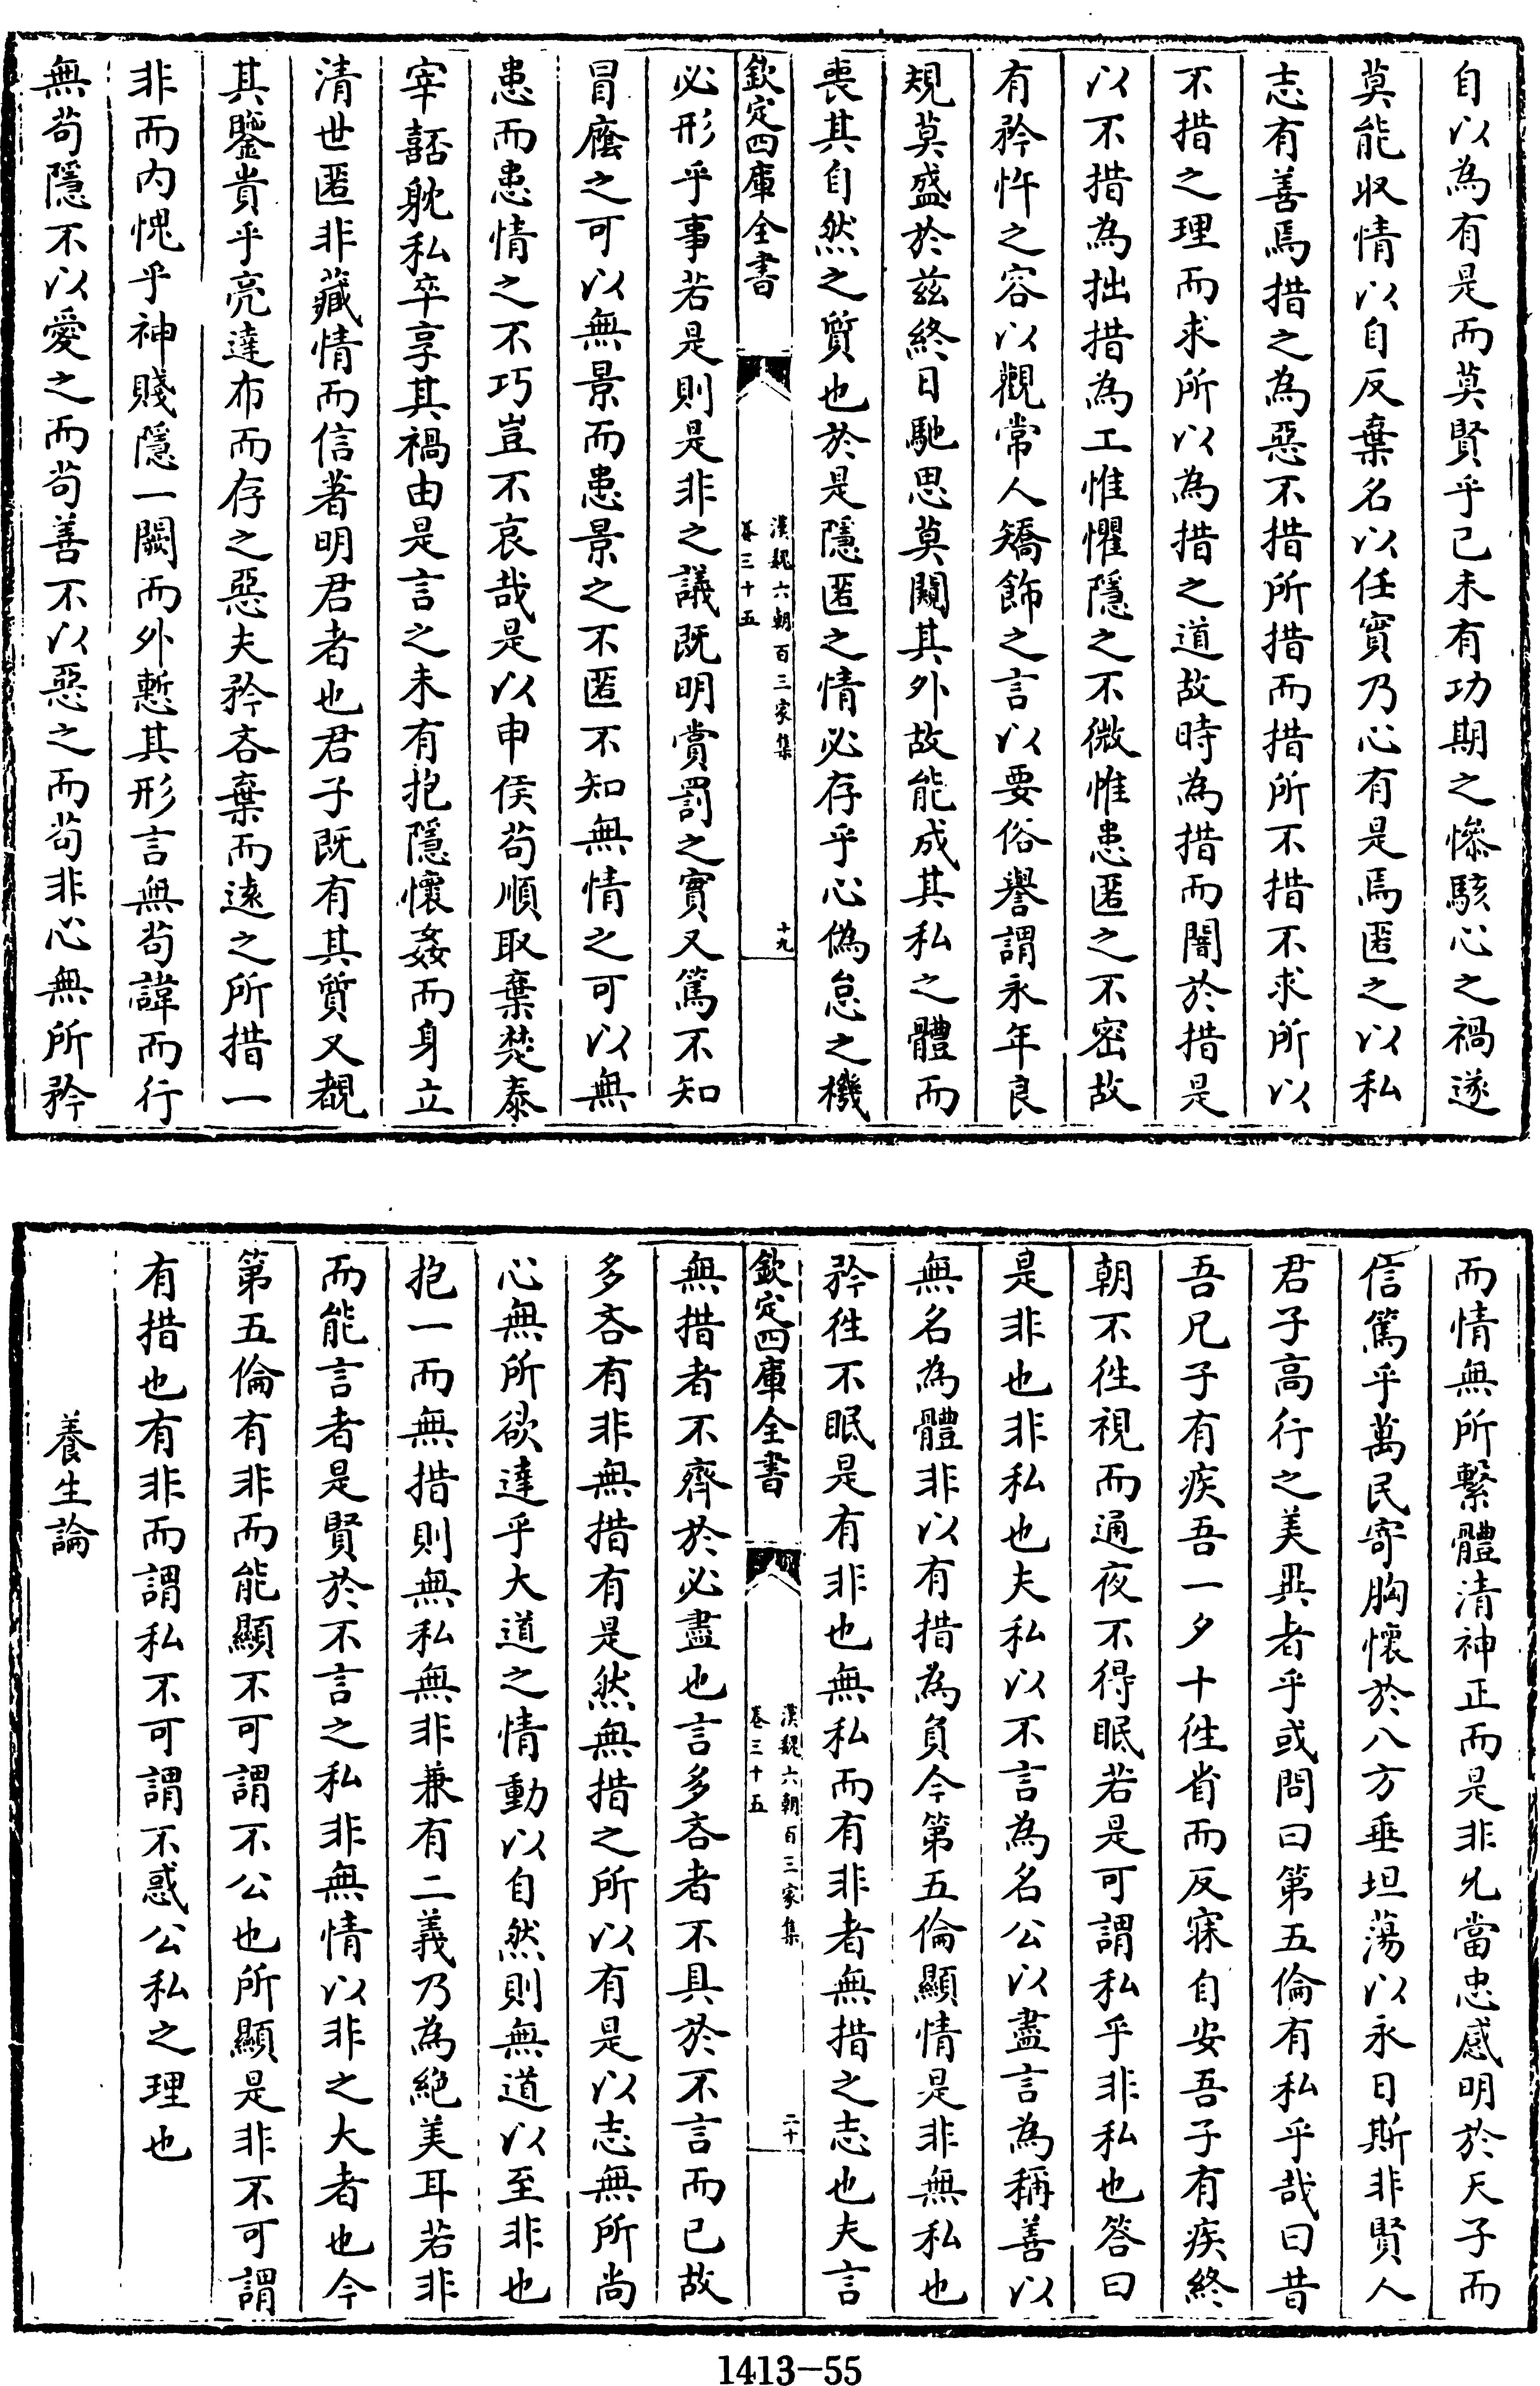 自以為有是而莫賢乎已未有功期之慘駭心之禍遂
莫能收情以自反棄名以任實乃心有是焉匿之以私
志有善焉措之為惡不措所措而措所不措不求所以
不措之理而求所以為措之道故時為措而闇於措是
以不措為拙措為工惟懼隱之不微惟患匿之不密故
有矜忤之容以觀常人矯飾之言以要俗譽謂永年良
規莫盛於兹終日馳思莫闚其外故能成其私之體而
喪其自然之質也於是隱匿之情必存乎心偽怠之機
欽定四庫全書
漢魏六朝百三家集
卷三十五
十九
必形乎事若是則是非之議既明賞罰之實又篤不知
冒廕之可以無景而患景之不匿不知無情之可以無
患而患情之不巧豈不哀哉是以申侯苟順取棄楚泰
宰嚭躭私卒享其禍由是言之未有抱隱懷姦而身立
清世匿非藏情而信著明君者也君子既有其質又覩
其鑒貴乎亮達布而存之惡夫矜吝棄而逺之所措一
非而内愧乎神賤隱一闕而外慙其形言無苟諱而行
無苟隱不以愛之而苟善不以惡之而苟非心無所矜
而情無所繫體清神正而是非允當忠感明於天子而
信篤乎萬民寄胸懷於八方垂坦蕩以永日斯非賢人
君子高行之美異者乎或問曰第五倫有私乎哉曰昔
吾兄子有疾吾一夕十徃省而反寐自安吾子有疾終
朝不徃視而通夜不得眠若是可謂私乎非私也答曰
是非也非私也夫私以不言為名公以盡言為稱善以
無名為體非以有措為負今第五倫顯情是非無私也
矜徃不眠是有非也無私而有非者無措之志也夫言
欽定四庫全書
漢魏六朝百三家集
卷三十五
二十
無措者不齊於必盡也言多吝者不具於不言而已故
多吝有非無措有是然無措之所以有是以志無所尚
心無所欲達乎大道之情動以自然則無道以至非也
抱一而無措則無私無非兼有二義乃為絶美耳若非
而能言者是賢於不言之私非無情以非之大者也今
第五倫有非而能顯不可謂不公也所顯是非不可謂
有措也有非而謂私不可謂不惑公私之理也
養生論
1413-55